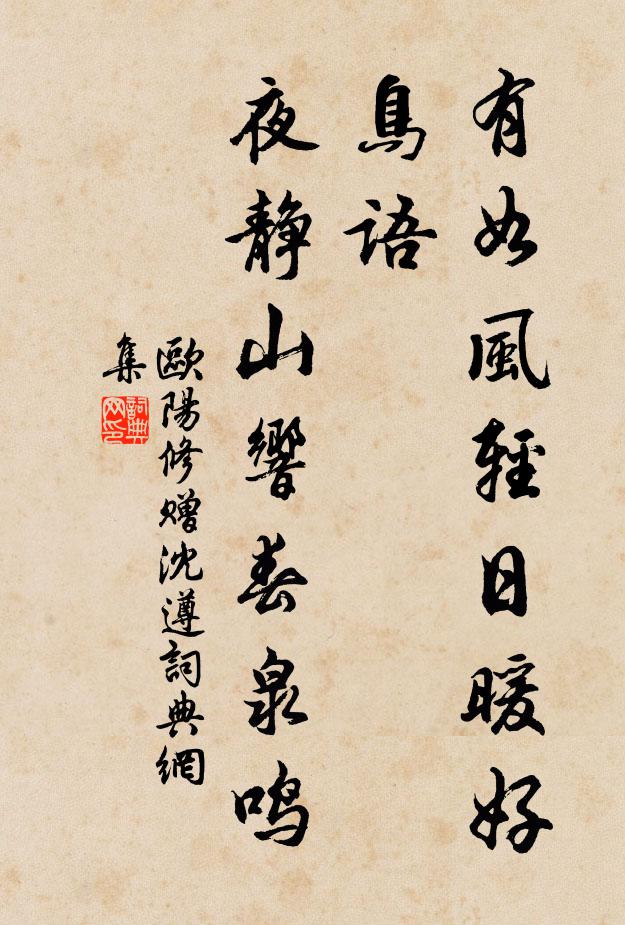 有如風輕日暖好
鳥語
夜静山響春泉鸣
歐陽修贈沈遵詞典網
集
詞典
网印